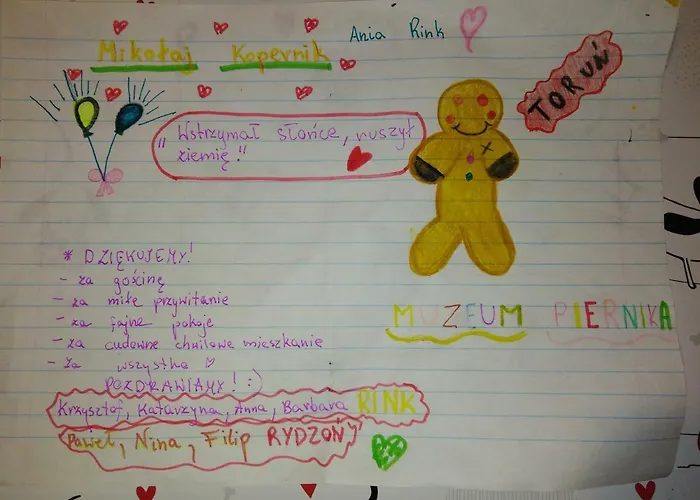 Ania Rink
Mikołaj Kopernik
TORUŃ
„Wstrzymał słońce, ruszył
ziemię."
* DZIĘKUJEMY!
- za gościnę
- za miłe przywitanie
- za fajne pokoje
- za cudowne chwilowe mieszkanie
- za wszystko ♡
POZDRAWIAMY! :)
MUZEUM PIERNIKA
Krzysztof, Katarzyna, Anna, Barbara RINK
Paweł, Nina, Filip RYDZOŃ